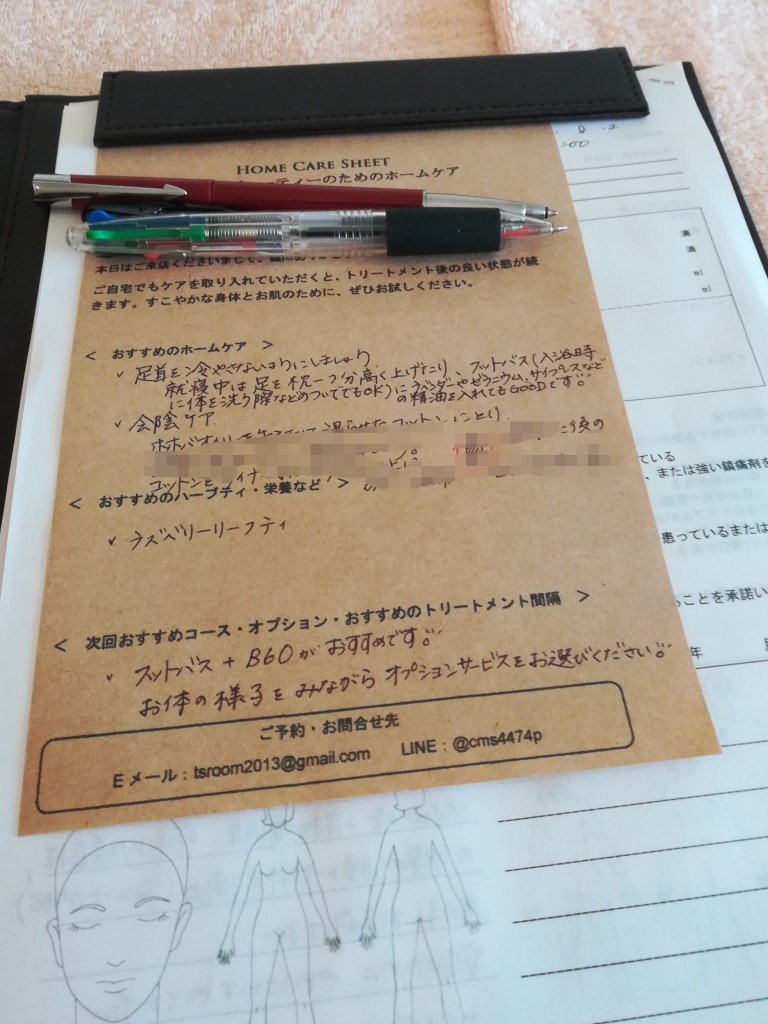 HOME CARE SHEET
ティーのためのホームケア
本日はご来店くださいまして、
ご自宅でもケアを取り入れていただくと、トリートメント後の良い状態が続
きます。すこやかな身体とお肌のために、ぜひお試しください。
< おすすめのホームケア >
✓ 足首を冷やさないようにしましょう
就寝中は足を枕一つ分高く上げたり、フットバス(入浴時
に体を洗う際などのついででもOK)にラベンダーやゼラニウム、サイプレスなど
の精油を入れてもGOODです。
✓ 会陰ケア
ホホバオイルを
コットンと
< おすすめのハーブティ・栄養など >
✓ ラズベリーリーフティ
< 次回おすすめコース・オプション・おすすめのトリートメント間隔 >
フットバス + B60がおすすめです。
お体の様子をみながらオプションサービスをお選びください。
ご予約・お問合せ先
Eメール：tsroom2013@gmail.com LINE：@cms4474p
滴
滴
ml
ml
ている
、または強い鎮痛剤を
患っているまたは
ることを承諾い
年